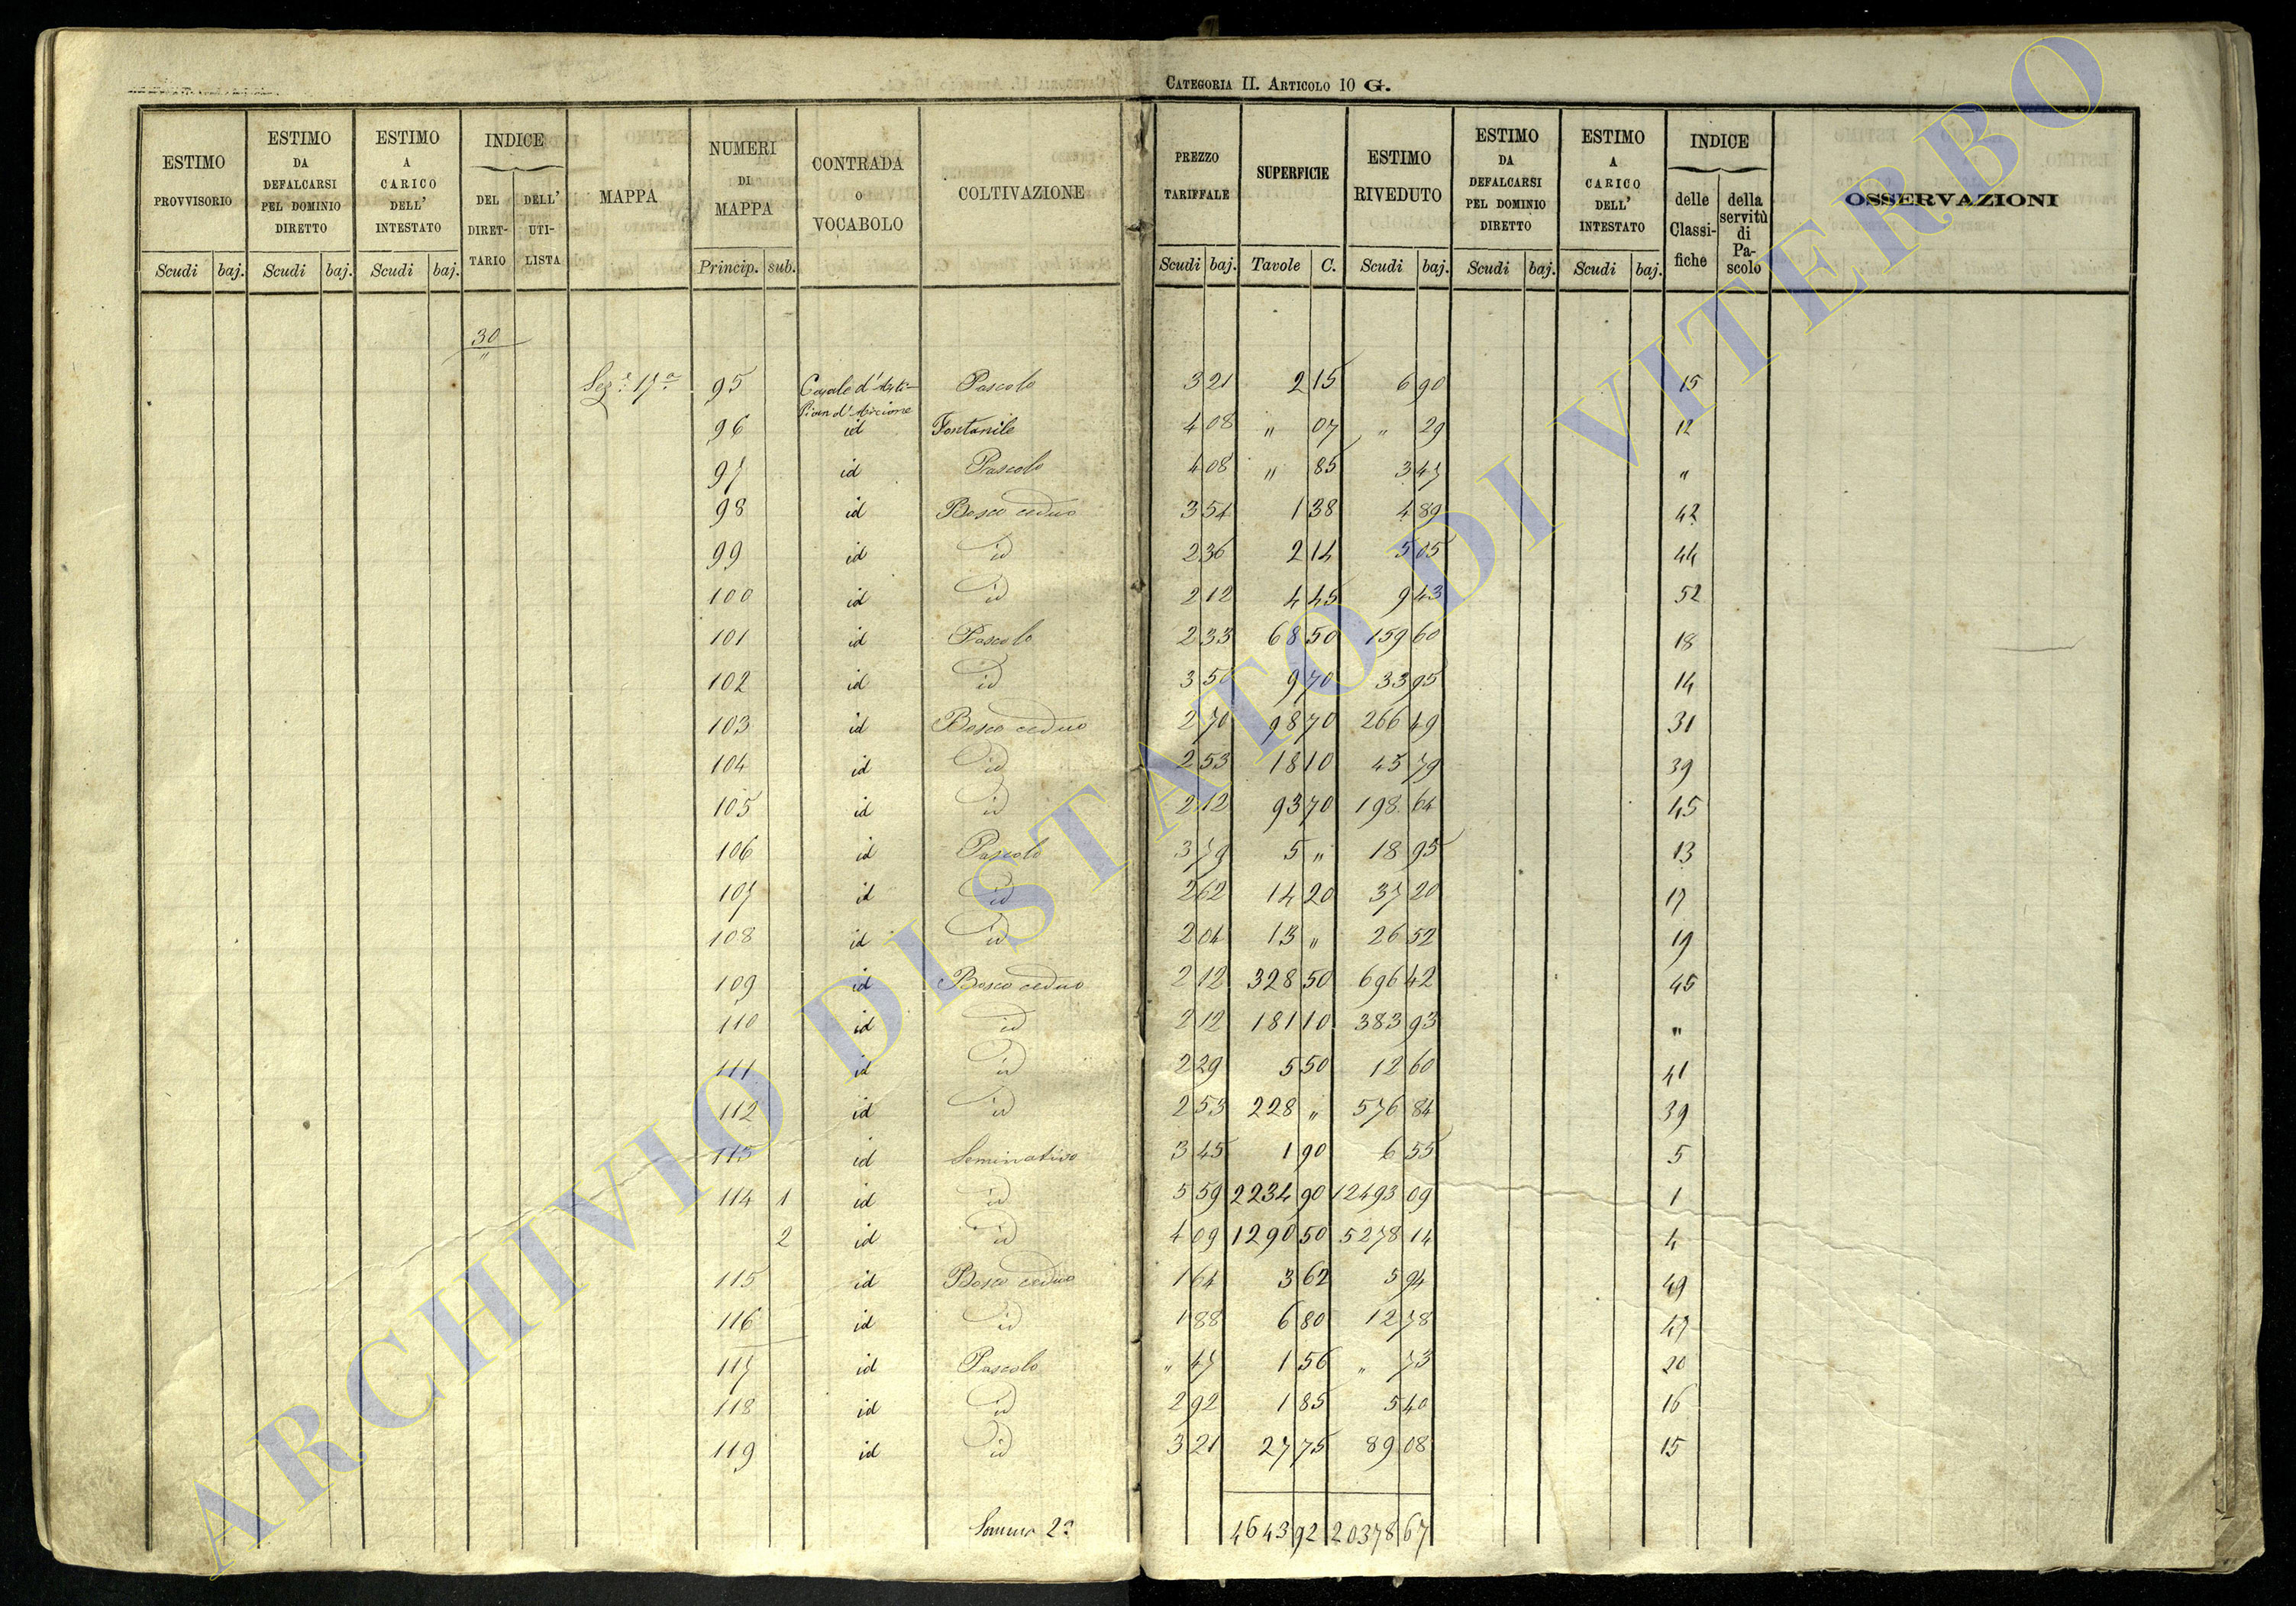 CATEGORIA II. ARTICOLO 10 G.
ESTIMO PROVVISORIO | ESTIMO DA DEFALCARSI PEL DOMINIO DIRETTO | ESTIMO A CARICO DELL' INTESTATO | INDICE DEL DIRET-TARIO | DELL' UTI-LISTA | MAPPA | NUMERI DI MAPPA | CONTRADA o VOCABOLO | COLTIVAZIONE | PREZZO TARIFFALE | SUPERFICIE | ESTIMO RIVEDUTO | ESTIMO DA DEFALCARSI PEL DOMINIO DIRETTO | ESTIMO A CARICO DELL' INTESTATO | INDICE delle Classi-fiche | della servitù di Pa-scolo | OSSERVAZIONI
Scudi | baj. | Scudi | baj. | Scudi | baj. | Princip. | sub. | Scudi | baj. | Tavole | C. | Scudi | baj. | Scudi | baj. | Scudi | baj.
30
"
Sez.e 17a 95 Casale d'Asti- Pascolo 3 21 2 15 6 90 15
Pian d'Arcione
96 id Fontanile 4 08 " 07 " 29 12
97 id Pascolo 4 08 " 85 3 47 "
98 id Bosco ceduo 3 54 1 38 4 89 42
99 id id 2 36 2 14 5 05 44
100 id id 2 12 4 45 9 43 52
101 id Pascolo 2 33 68 50 159 60 18
102 id id 3 50 9 70 33 95 14
103 id Bosco ceduo 2 70 98 70 266 49 31
104 id id 2 53 18 10 45 79 39
105 id id 2 12 93 70 198 64 45
106 id Pascolo 3 79 5 " 18 95 13
107 id id 2 62 14 20 37 20 17
108 id id 2 04 13 " 26 52 19
109 id Bosco ceduo 2 12 328 50 696 42 45
110 id id 2 12 181 10 383 93 "
111 id id 2 29 5 50 12 60 41
112 id id 2 53 228 " 576 84 39
113 id Seminativo 3 45 1 90 6 55 5
114 1 id id 5 59 2234 90 12493 09 1
2 id id 4 09 1290 50 5278 14 4
115 id Bosco ceduo 1 64 3 62 5 94 49
116 id id 1 88 6 80 12 78 47
117 id Pascolo " 47 1 56 " 73 20
118 id id 2 92 1 85 5 40 16
119 id id 3 21 27 75 89 08 15
Somma 2a 4643 92 20378 67
ARCHIVIO DI STATO DI VITERBO